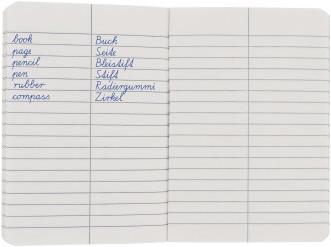 book Buck
page Seite
pencil Bleistift
pen Stift
rubber Radiergummi
compass Zirkel